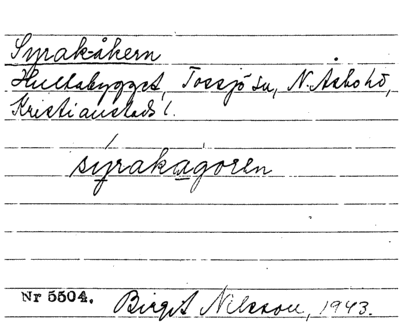 Syrak-åkern
Hultabygget, Tossjö sn, N. Åsbo hd,
Kristianstads l.
sýrakagoren
Nr 5504. Birgit Nilsson, 1943.